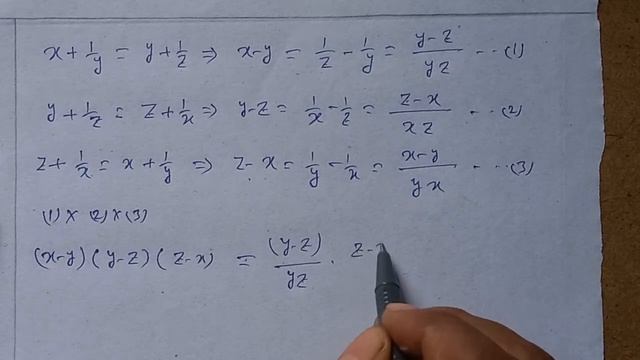 x + 1/y = y + 1/z ⇒ x-y = 1/z - 1/y = (y-z)/(yz) --- (1)
y + 1/z = z + 1/x ⇒ y-z = 1/x - 1/z = (z-x)/(xz) --- (2)
z + 1/x = x + 1/y ⇒ z-x = 1/y - 1/x = (x-y)/(yx) --- (3)
(1) x (2) x (3)
(x-y) (y-z) (z-x) = (y-z)/(yz) . z-